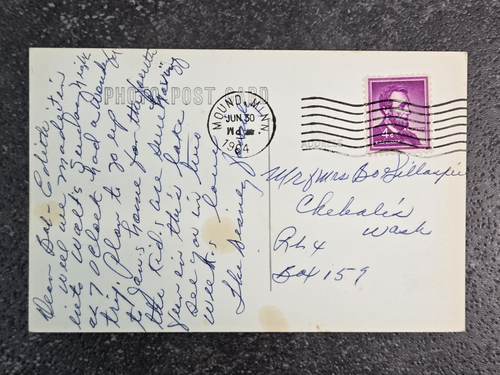 PHOTO POST CARD
Dear Bob - Edith
well we made it in
into Walt's Sunday nite
at 7 oclock had a dandy
trip. Plan to go up
to Jans home for the fourth
the kids are sure having
fun in this lake
see you in two
weeks. love
the
MOUND, MINN.
JUN 30
PM
1964
ADDRESS
Mr & Mrs Bob Gillaspie
Chehalis
Wash
Rt 4
Box 159